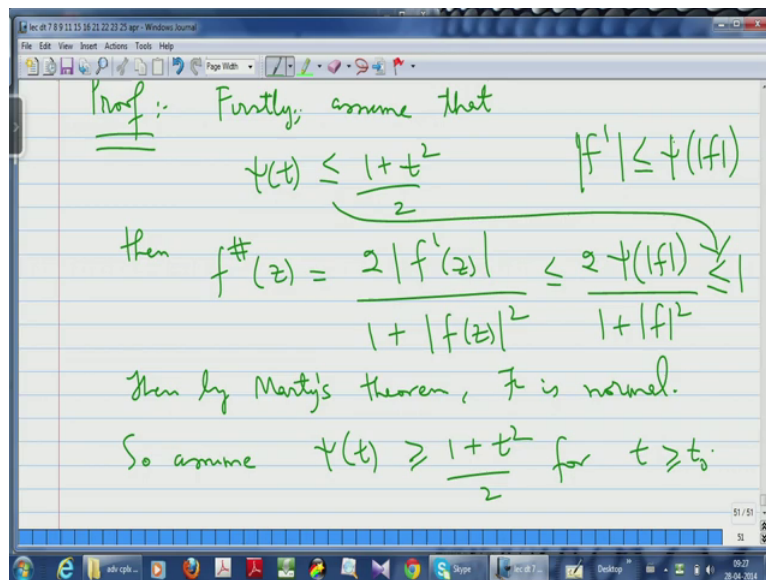 lec dt 7 8 9 11 15 16 21 22 23 25 apr - Windows Journal
File Edit View Insert Actions Tools Help
Page Width
Proof:- Firstly, assume that
ψ(t) ≤ (1 + t²)/2    |f'| ≤ ψ(|f|)
then f^#(z) = 2|f'(z)| / (1 + |f(z)|²) ≤ 2ψ(|f|) / (1 + |f|²) ≤ 1
Then by Marty's theorem, F is normal.
So assume ψ(t) ≥ (1 + t²)/2 for t ≥ t₀.
51 / 51
51
adv cplx... Skype lec dt 7... Desktop 09:27
28-04-2014